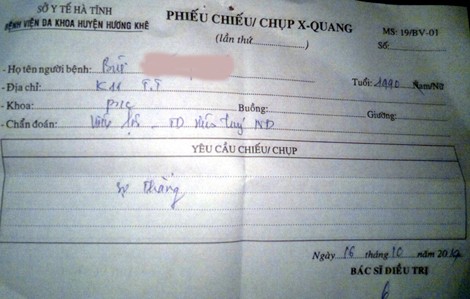 SỞ Y TẾ HÀ TĨNH
BỆNH VIỆN ĐA KHOA HUYỆN HƯƠNG KHÊ
PHIẾU CHIẾU/ CHỤP X-QUANG
(lần thứ....................)
MS: 19/BV-01
Số:
- Họ tên người bệnh: Bùi
Tuổi: 1990 Nam/Nữ
- Địa chỉ: K11 T.T
- Khoa: Buồng: Giường:
- Chẩn đoán: TD
YÊU CẦU CHIẾU/ CHỤP
sọ thẳng
Ngày 16 tháng 10 năm 20
BÁC SĨ ĐIỀU TRỊ